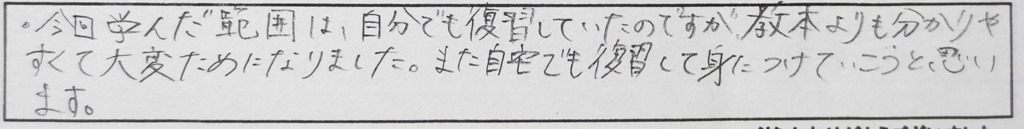 ・今回学んだ範囲は、自分でも復習していたのですが、教本よりも分かりや
すくて大変ためになりました。また自宅でも復習して身につけていこうと思い
ます。